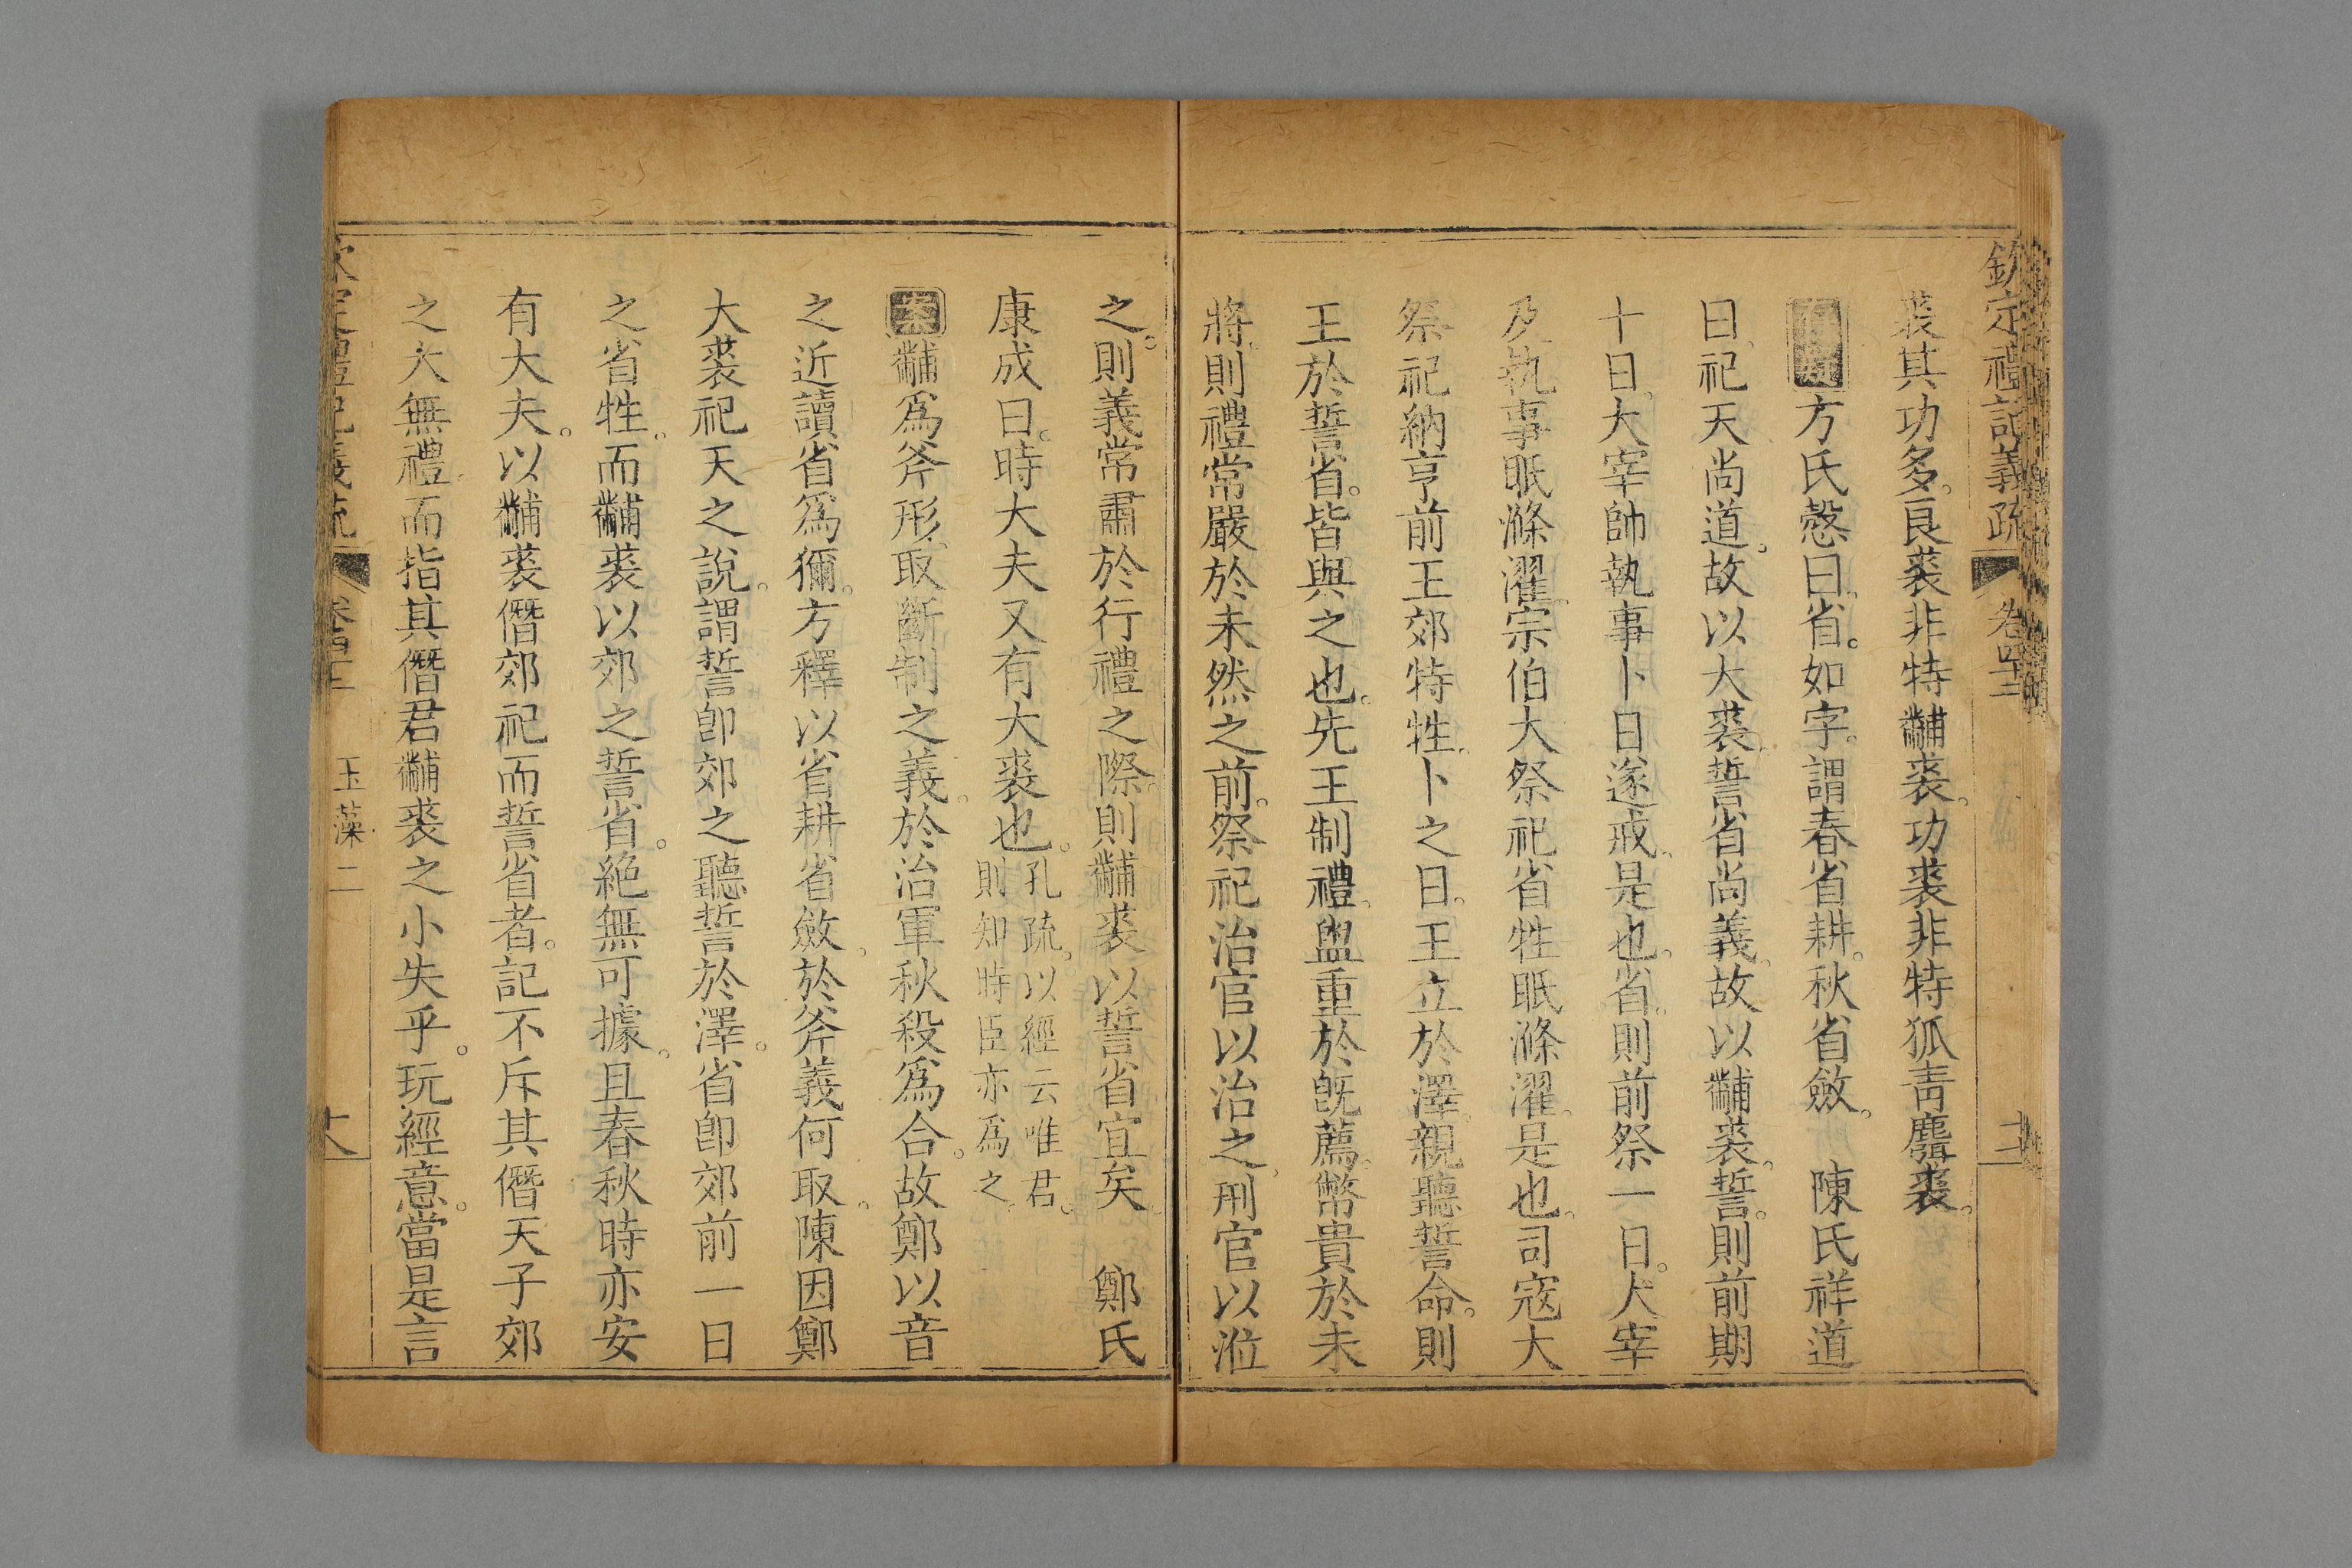 欽定禮記義疏 卷四十二
裘其功多。良裘非特黼裘。功裘非特狐靑麛裘。
方氏慤曰。省。如字。謂春省耕。秋省斂。 陳氏祥道
曰。祀天尚道。故以大裘。誓省尚義。故以黼裘。誓。則前期
十日。大宰帥執事卜日遂戒。是也。省。則前祭一日。大宰
及執事眂滌濯。宗伯大祭祀省牲眂滌濯。是也。司寇大
祭祀納亨前王郊特牲。卜之日。王立於澤。親聽誓命。則
王於誓省。皆與之也。先王制禮。盥重於旣薦。幣貴於未
將。則禮常嚴於未然之前。祭祀治官以治之。刑官以涖
之。則義常肅於行禮之際。則黼裘以誓省宜矣。 鄭氏
康成曰。時大夫又有大裘也。孔疏。以經云唯君。則知時臣亦爲之。
案黼爲斧形。取斷制之義。於治軍秋殺爲合。故鄭以音
之近讀省爲獮。方釋以省耕省斂。於斧義何取。陳因鄭
大裘祀天之說。謂誓卽郊之聽誓於澤。省卽郊前一日
之省牲。而黼裘以郊之誓省。絶無可據。且春秋時亦安
有大夫。以黼裘僭郊祀而誓省者。記不斥其僭天子郊
之大無禮。而指其僭君黼裘之小失乎。玩經意。當是言
欽定禮記義疏 卷四十二 玉藻二 十八